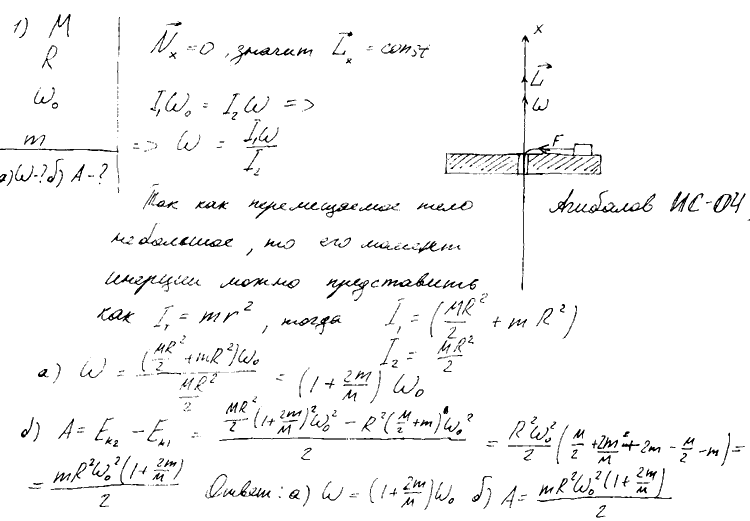 1) M
R
ω₀
m
а) ω-? б) A-?
N⃗ₓ = 0, значит L⃗ₓ = const
I₁ω₀ = I₂ω =>
=> ω = I₁ω / I₂
x
L⃗
ω
F
Агибалов ИС-04
Так как перемещаемое тело
небольшое, то его момент
инерции можно представить
как I₁ = mr², тогда I₁ = (MR²/2 + mR²)
I₂ = MR²/2
а) ω = (MR²/2 + mR²)ω₀ / (MR²/2) = (1 + 2m/M) ω₀
б) A = Eₖ₂ − Eₖ₁ = (MR²/2 (1 + 2m/M)² ω₀² − R²(M/2 + m) ω₀²) / 2 = R²ω₀²/2 (M/2 + 2m²/M + 2m − M/2 − m) =
= mR²ω₀²(1 + 2m/M) / 2 Ответ: а) ω = (1 + 2m/M)ω₀ б) A = mR²ω₀²(1 + 2m/M) / 2